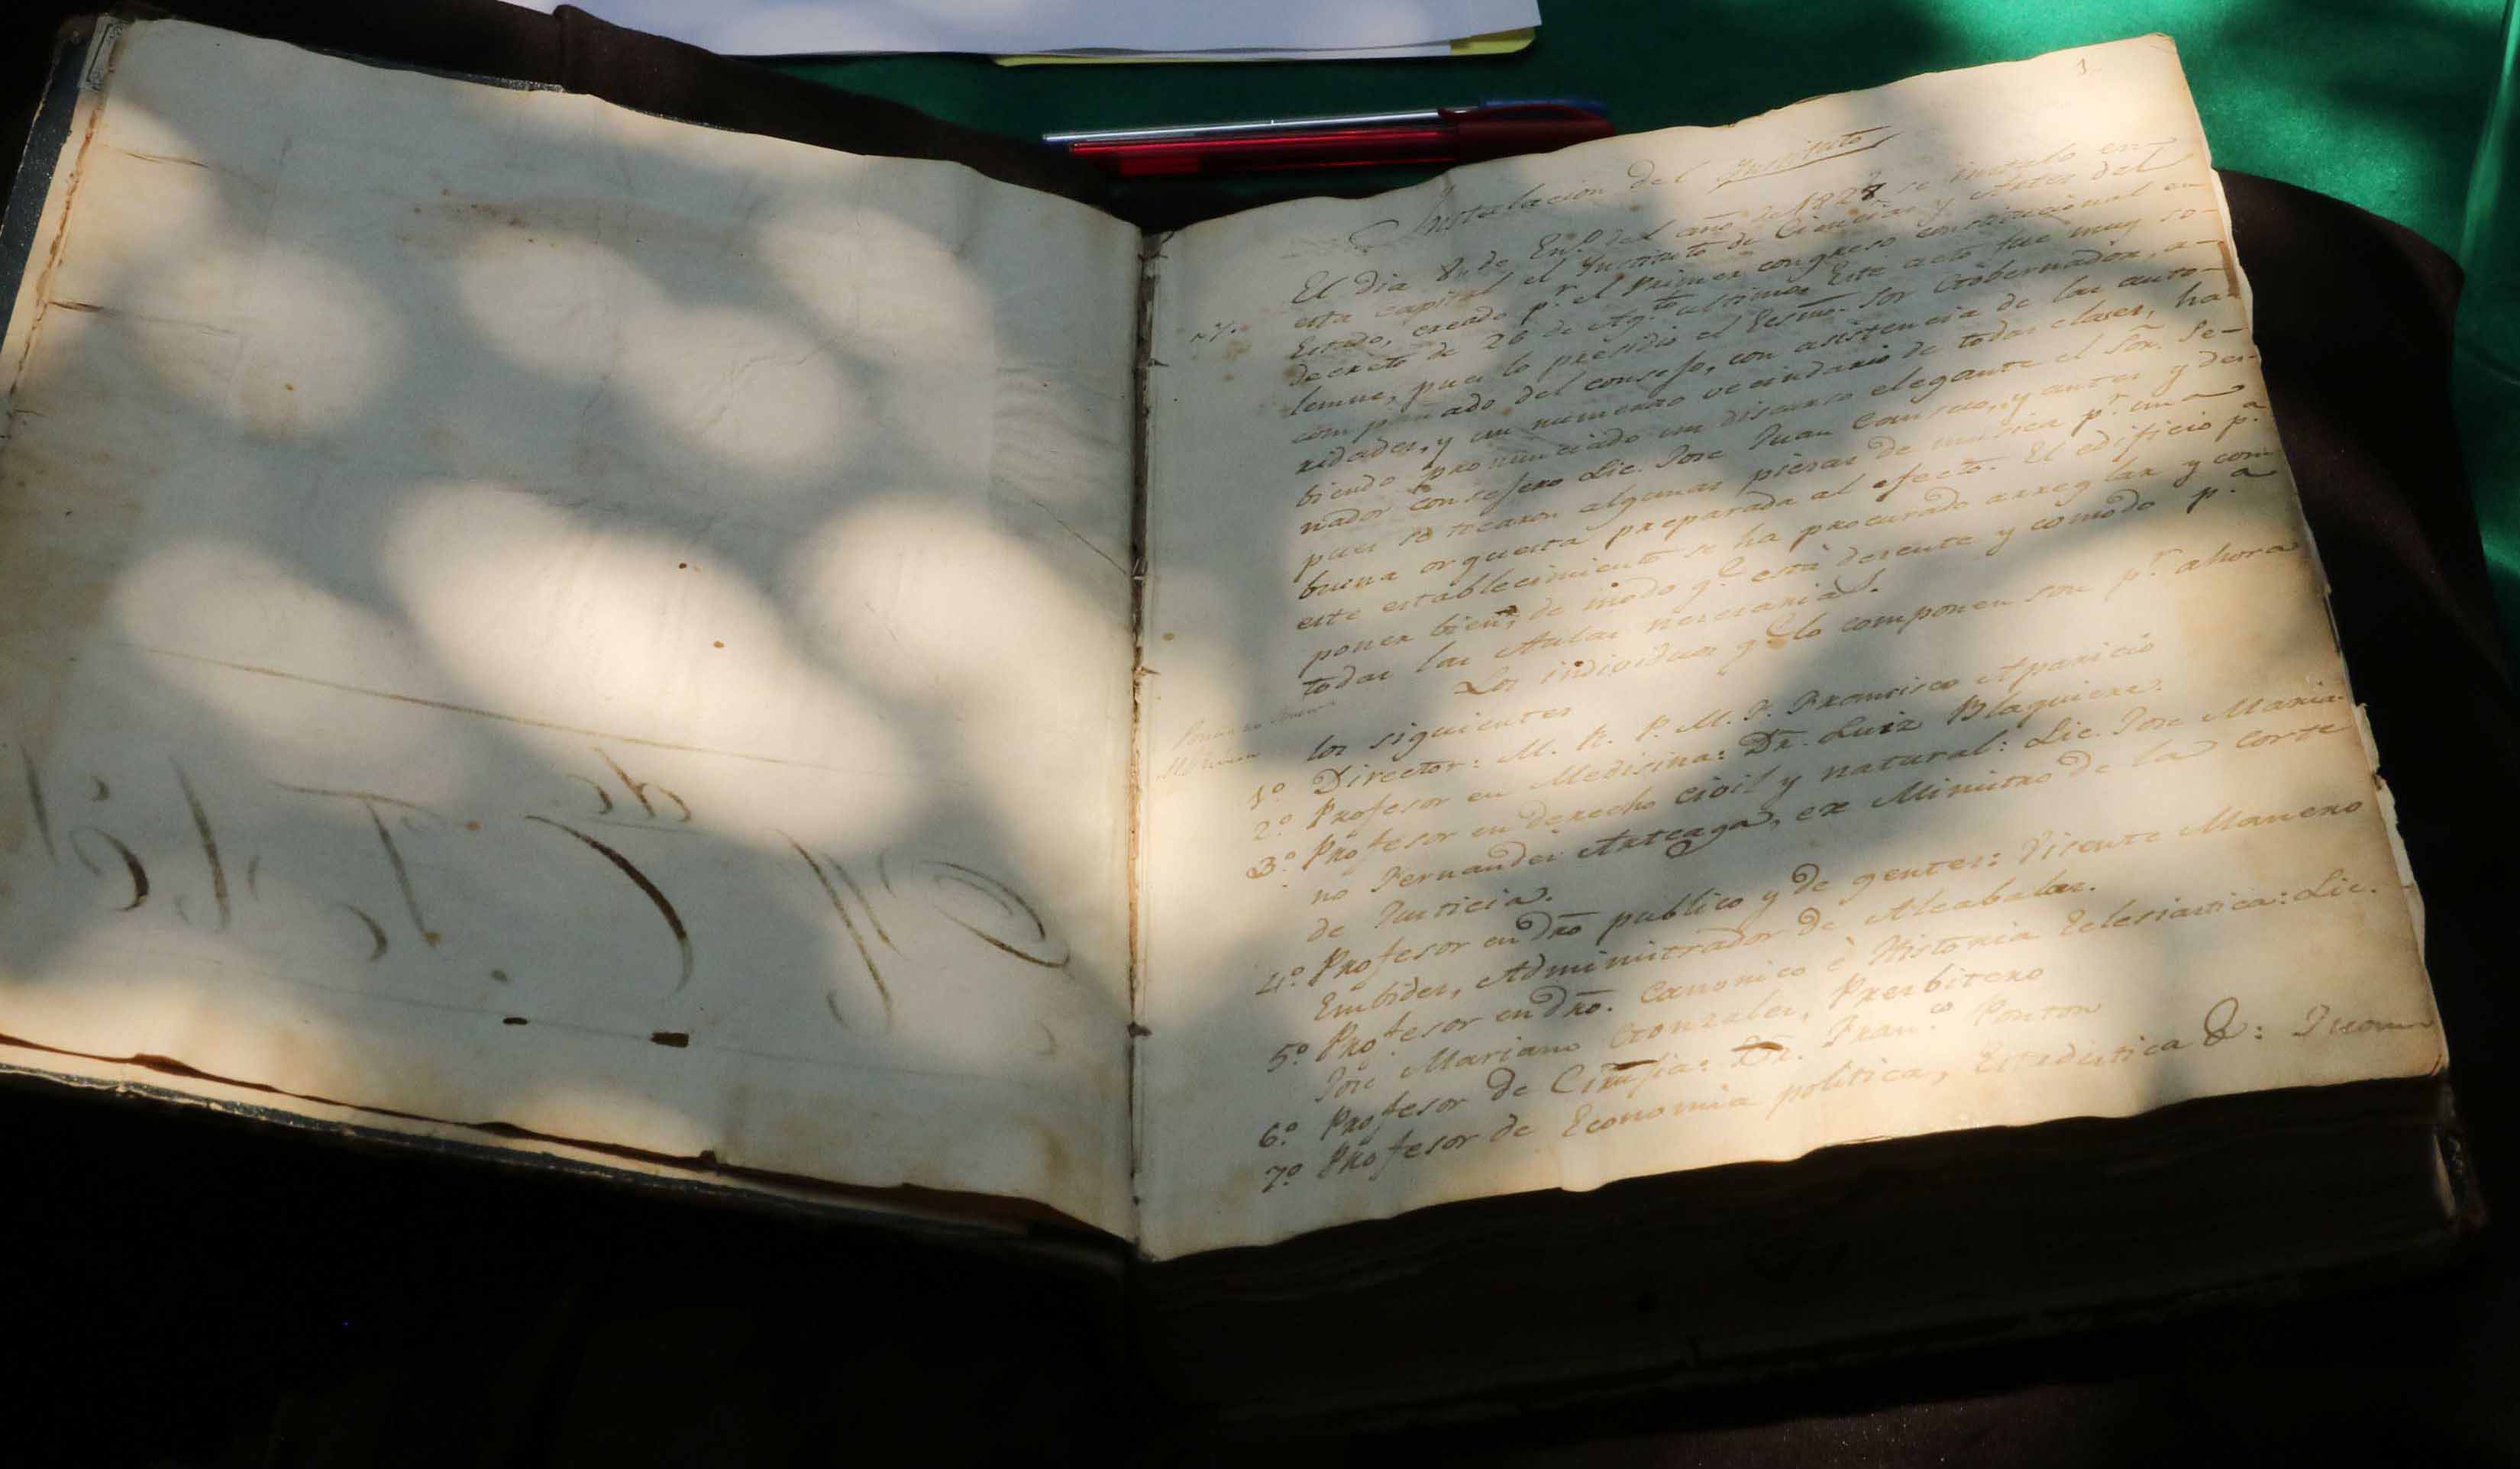 1
Instalacion del Instituto
El dia 8 de En.º del año de 1828 se instalo en
esta capital el Instituto de Ciencias y Artes del
Estado, creado p.r el Primer congreso constitucional en
decreto de 26 de Ag.to ultimo. Este acto fue muy so-
lemne, pues lo presidio el Ecsmo. Sor Gobernador, a-
compañado del consejo, con asistencia de las auto-
ridades, y un numeroso vecindario de todas clases, ha-
biendo pronunciado un discurso elegante el Sor. Se-
nador consejero Lic. Jose Juan Canseco, y antes y des-
pues se tocaron algunas piezas de musica p.r una
buena orquesta preparada al efecto. El edificio p.a
este establecimiento se ha procurado arreglar y com-
poner bien, de modo q.e está desente y comodo p.a
todas las Aulas necesarias.
Los individuos q.e lo componen son p.r ahora
los siguientes
1º Director: M. R. P. M. F. Francisco Aparicio
2º Profesor en Medisina: Dr. Luiz Blaquiere.
3º Profesor en derecho civil y natural: Lic. Jose Maria-
no Fernandez Arteaga, ex Ministro de la Corte
de Justicia.
4º Profesor en dro publico y de gentes: Vicente Manero
Embides, Administrador de Alcabalas.
5º Profesor en dro. Canonico è Historia Eclesiastica: Lic.
Jose Mariano Gonzales, Presbitero
6º Profesor de Cirujia: Dr. Fran.co Ponton
7º Profesor de Economia politica, Estadistica &: